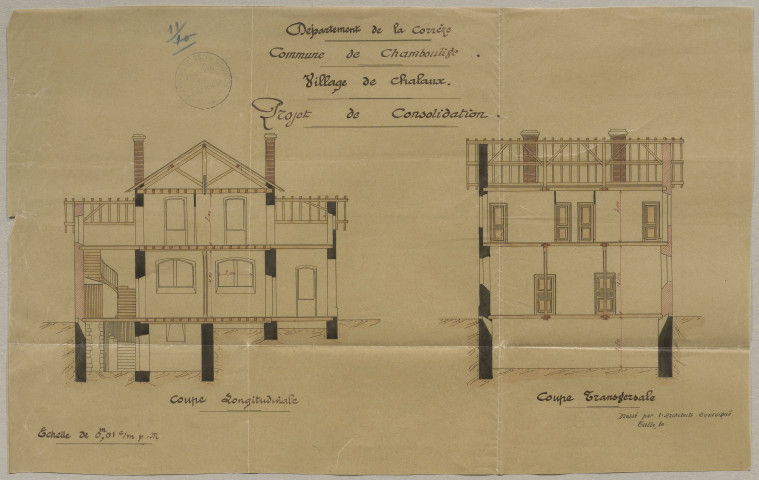 Département de la Corrèze
Commune de Chamboulive.
Village de Chalaux.
Projet de Consolidation.
Coupe Longitudinale
Coupe Transversale
Echelle de 0m,01 c/m p. M
Dressé par l'Architecte soussigné
Tulle, le